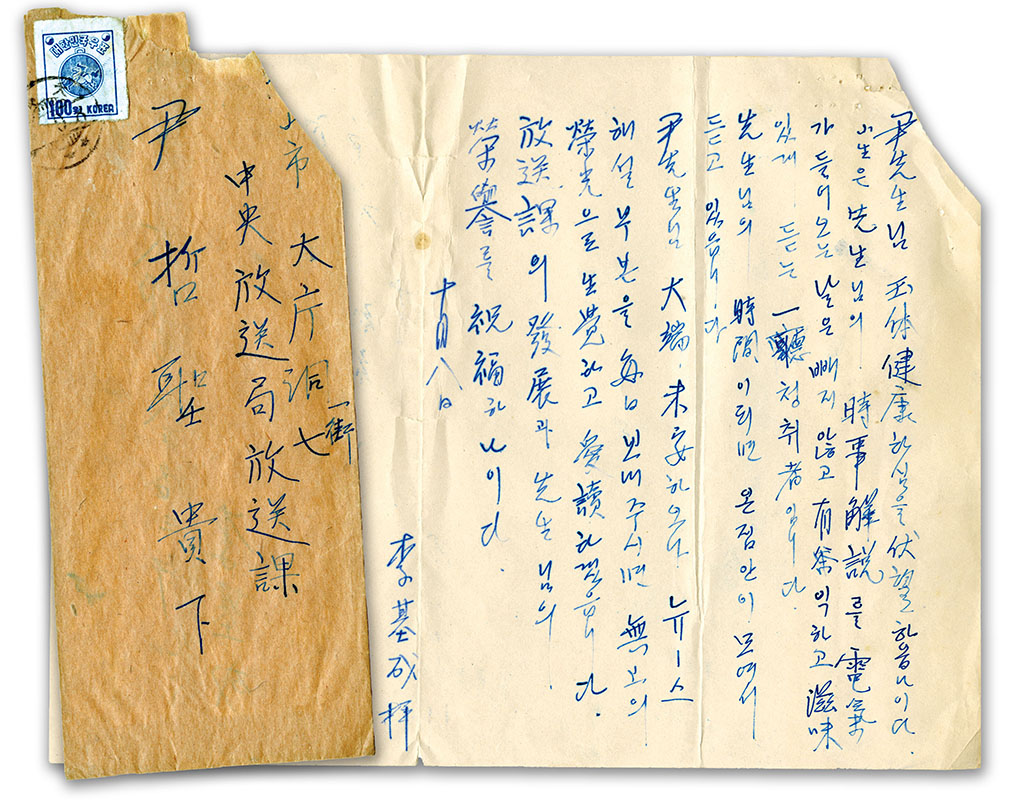 대한민국우표
100원 KOREA
市 大庁洞 一街 七
中央放送局放送課
尹 哲聖 貴下
尹先生님 玉体健康하심을 伏望하옵나이다.
小生은 先生님의 時事解説를 電氣
가 들어오는 날은 빼지 않고 有益하고 滋味
있게 듣는 一聽청취者입니다.
先生님의 時間이되면 온집안이 모여서
듣고 있읍니다
尹先生님 大端 未安하오나 뉴ー스
해설 부본을 每日 보내주시면 無上의
榮光으로 生覺하고 愛讀하겠읍니다.
放送課의 發展과 先生님의
榮譽를 祝福하나이다
十月八日
李基成 拝